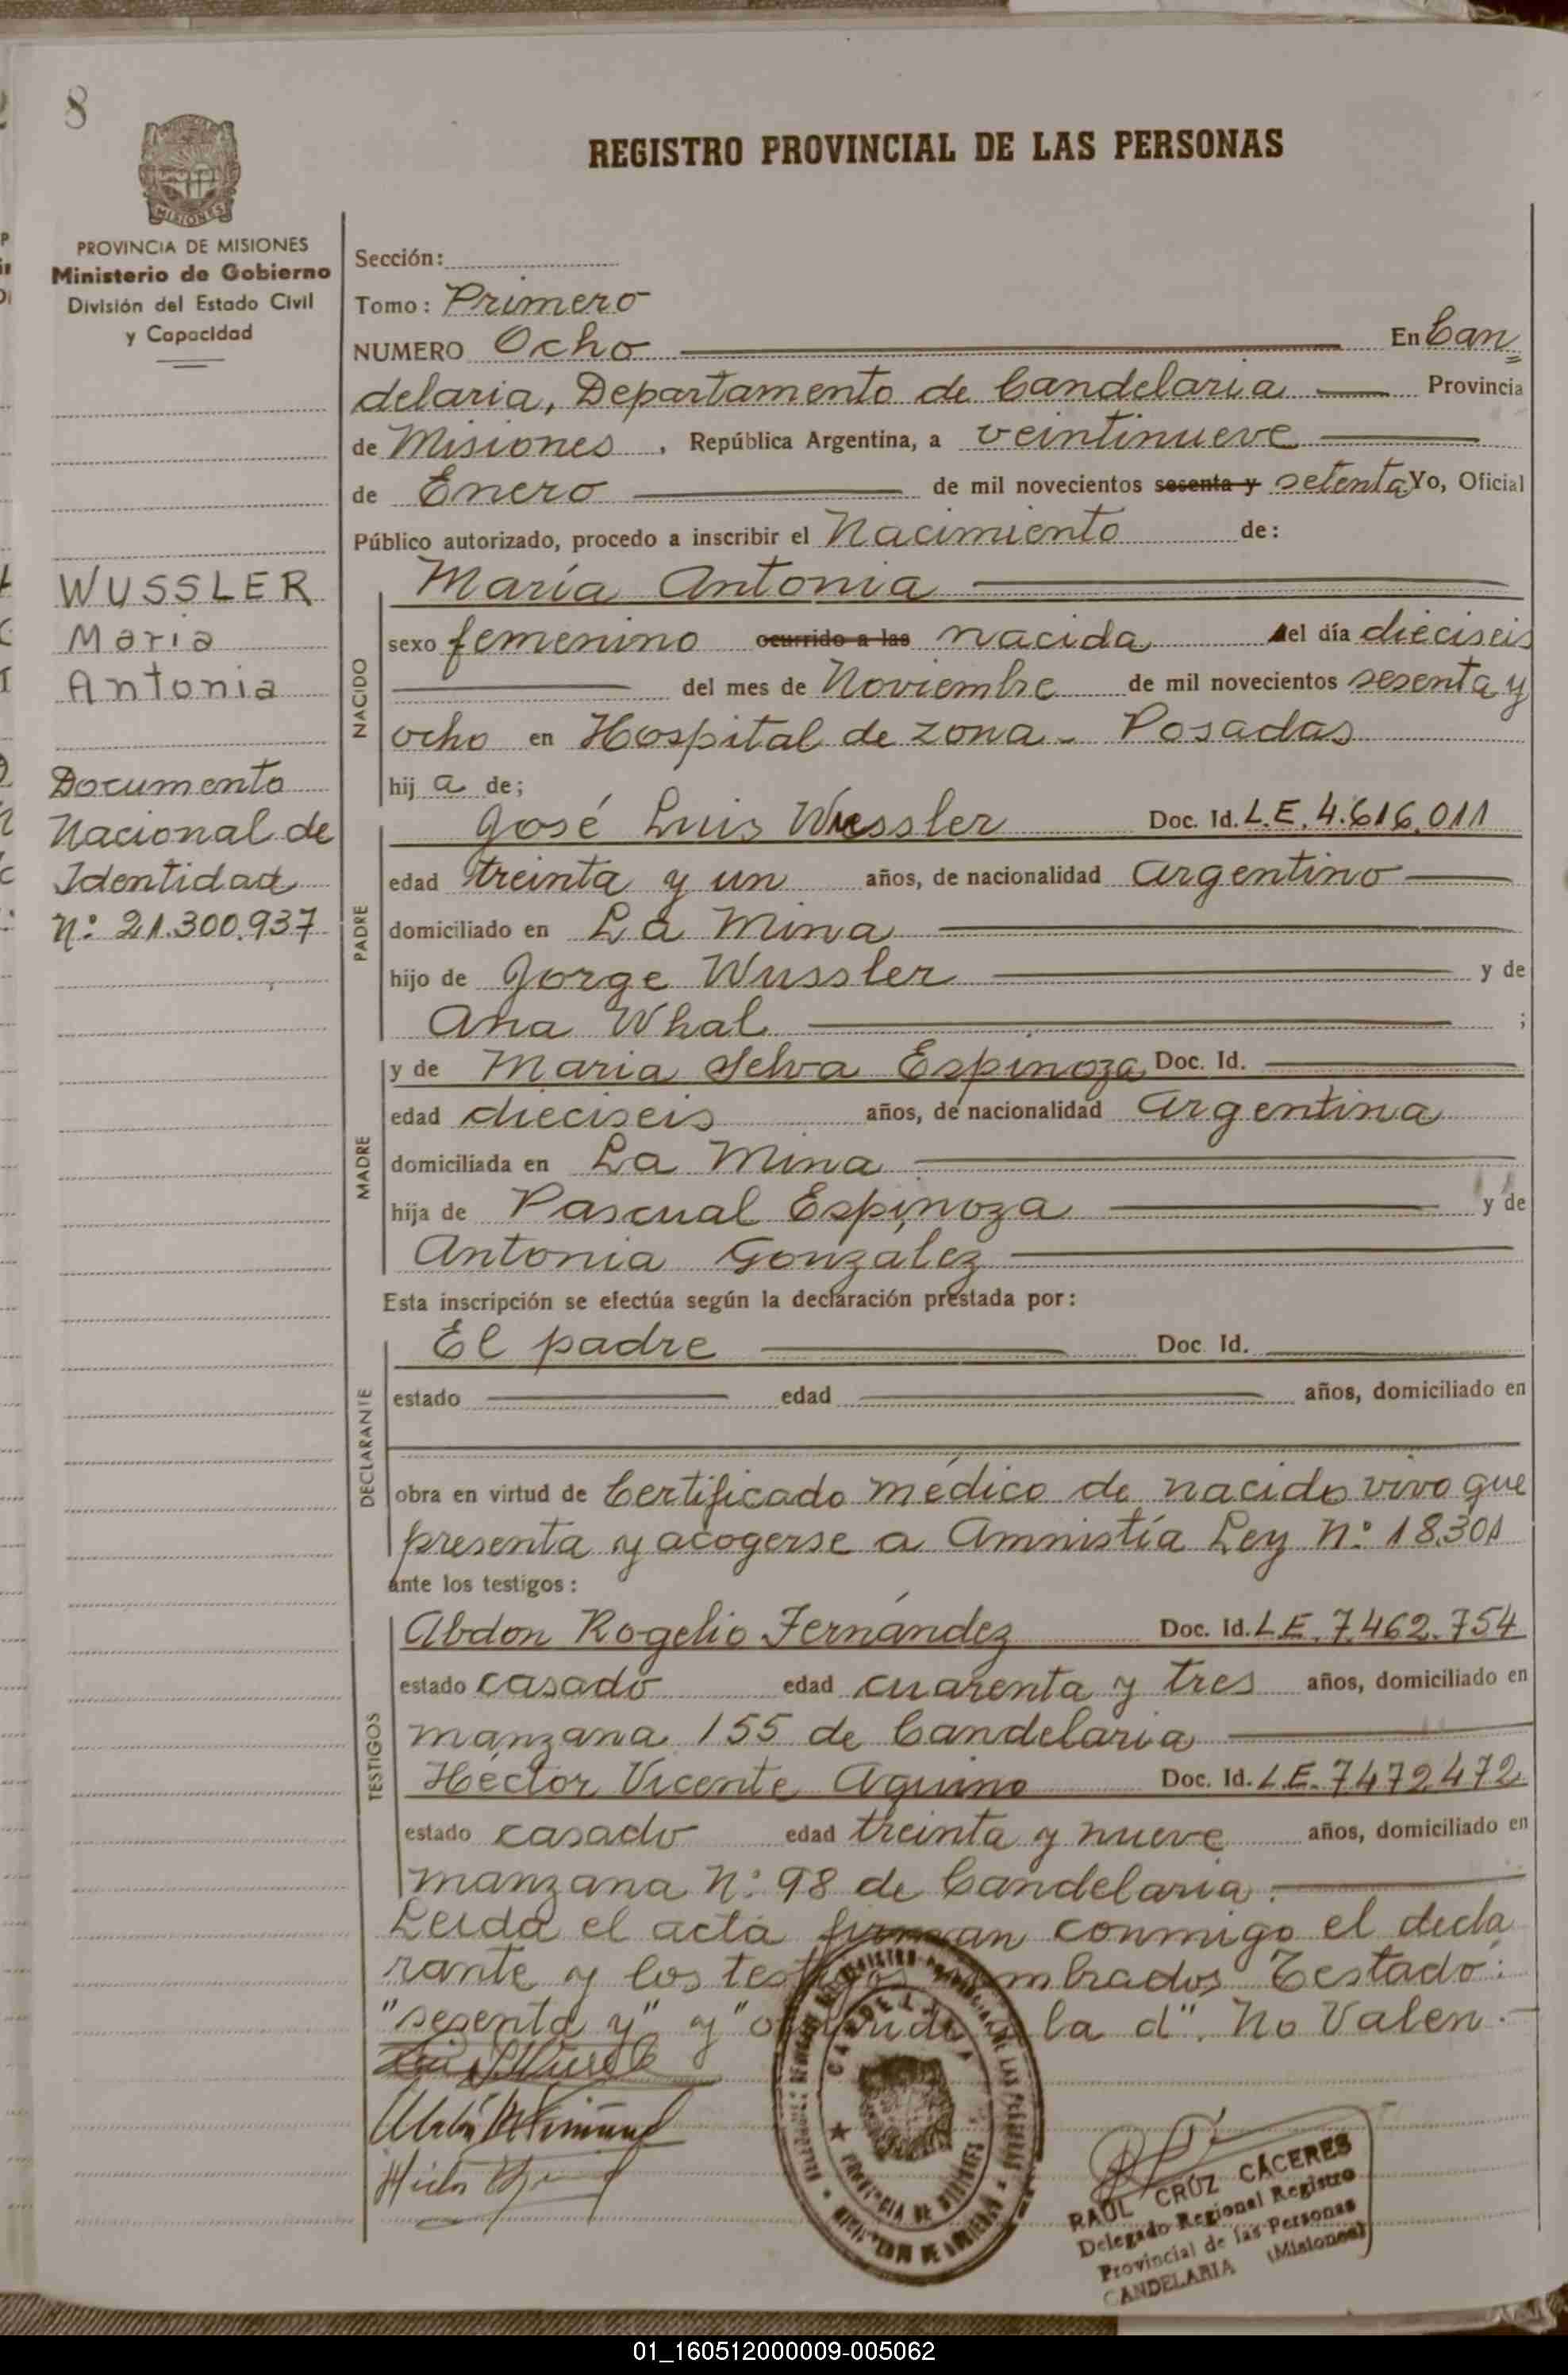 8
MISIONES
PROVINCIA DE MISIONES
Ministerio de Gobierno
División del Estado Civil
y Capacidad
WUSSLER
Maria
Antonia
Documento
Nacional de
Identidad
Nº 21.300.937
REGISTRO PROVINCIAL DE LAS PERSONAS
Sección:
Tomo: Primero
NUMERO Ocho En Can
delaria, Departamento de Candelaria Provincia
de Misiones, República Argentina, a veintinueve
de Enero de mil novecientos sesenta y setenta Yo, Oficial
Público autorizado, procedo a inscribir el Nacimiento de:
NACIDO
María Antonia
sexo femenino ocurrido a las nacida del día dieciseis
del mes de Noviembre de mil novecientos sesenta y
ocho en Hospital de zona - Posadas
hij a de;
PADRE
José Luis Wussler Doc. Id. L.E. 4.616.011
edad treinta y un años, de nacionalidad argentino
domiciliado en La Mina
hijo de Jorge Wussler y de
Ana Whal ;
MADRE
y de Maria Selva Espinoza Doc. Id.
edad dieciseis años, de nacionalidad argentina
domiciliada en La Mina
hija de Pascual Espinoza y de
Antonia González
Esta inscripción se efectúa según la declaración prestada por:
DECLARANTE
El padre Doc. Id.
estado edad años, domiciliado en
obra en virtud de Certificado médico de nacido vivo que
presenta y acogerse a Amnistía Ley Nº 18.301
ante los testigos:
TESTIGOS
Abdon Rogelio Fernández Doc. Id. L.E. 7.462.754
estado casado edad cuarenta y tres años, domiciliado en
manzana 155 de Candelaria
Héctor Vicente Aquino Doc. Id. L.E. 7472472
estado casado edad treinta y nueve años, domiciliado en
manzana Nº 98 de Candelaria.
Leída el acta firman conmigo el decla
rante y los testigos nombrados Testado:
"sesenta y" y "ocurrido a la d". No Valen.-
CANDELARIA
PROVINCIA DE MISIONES
RAUL CRUZ CÁCERES
Delegado Regional Registro
Provincial de las Personas
CANDELARIA (Misiones)
01_160512000009-005062